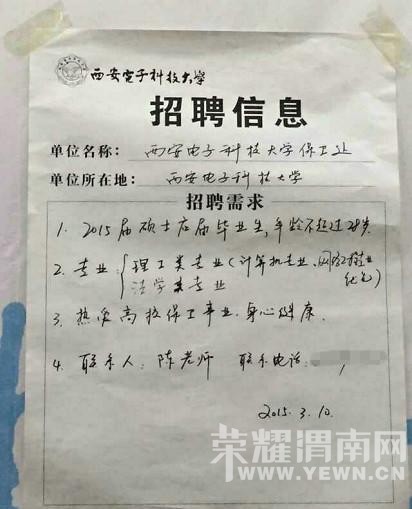 西安电子科技大学
招聘信息
单位名称: 西安电子科技大学保卫处
单位所在地: 西安电子科技大学
招聘需求
1. 2015届硕士应届毕业生,年龄不超过28岁.
2. 专业: 理工类专业(计算机专业、网络专业
优先)
法学类专业
3. 热爱高校保卫事业.身心健康.
4. 联系人: 陈老师 联系电话:
2015.3.10.
荣耀渭南网
WWW.YEWN.CN